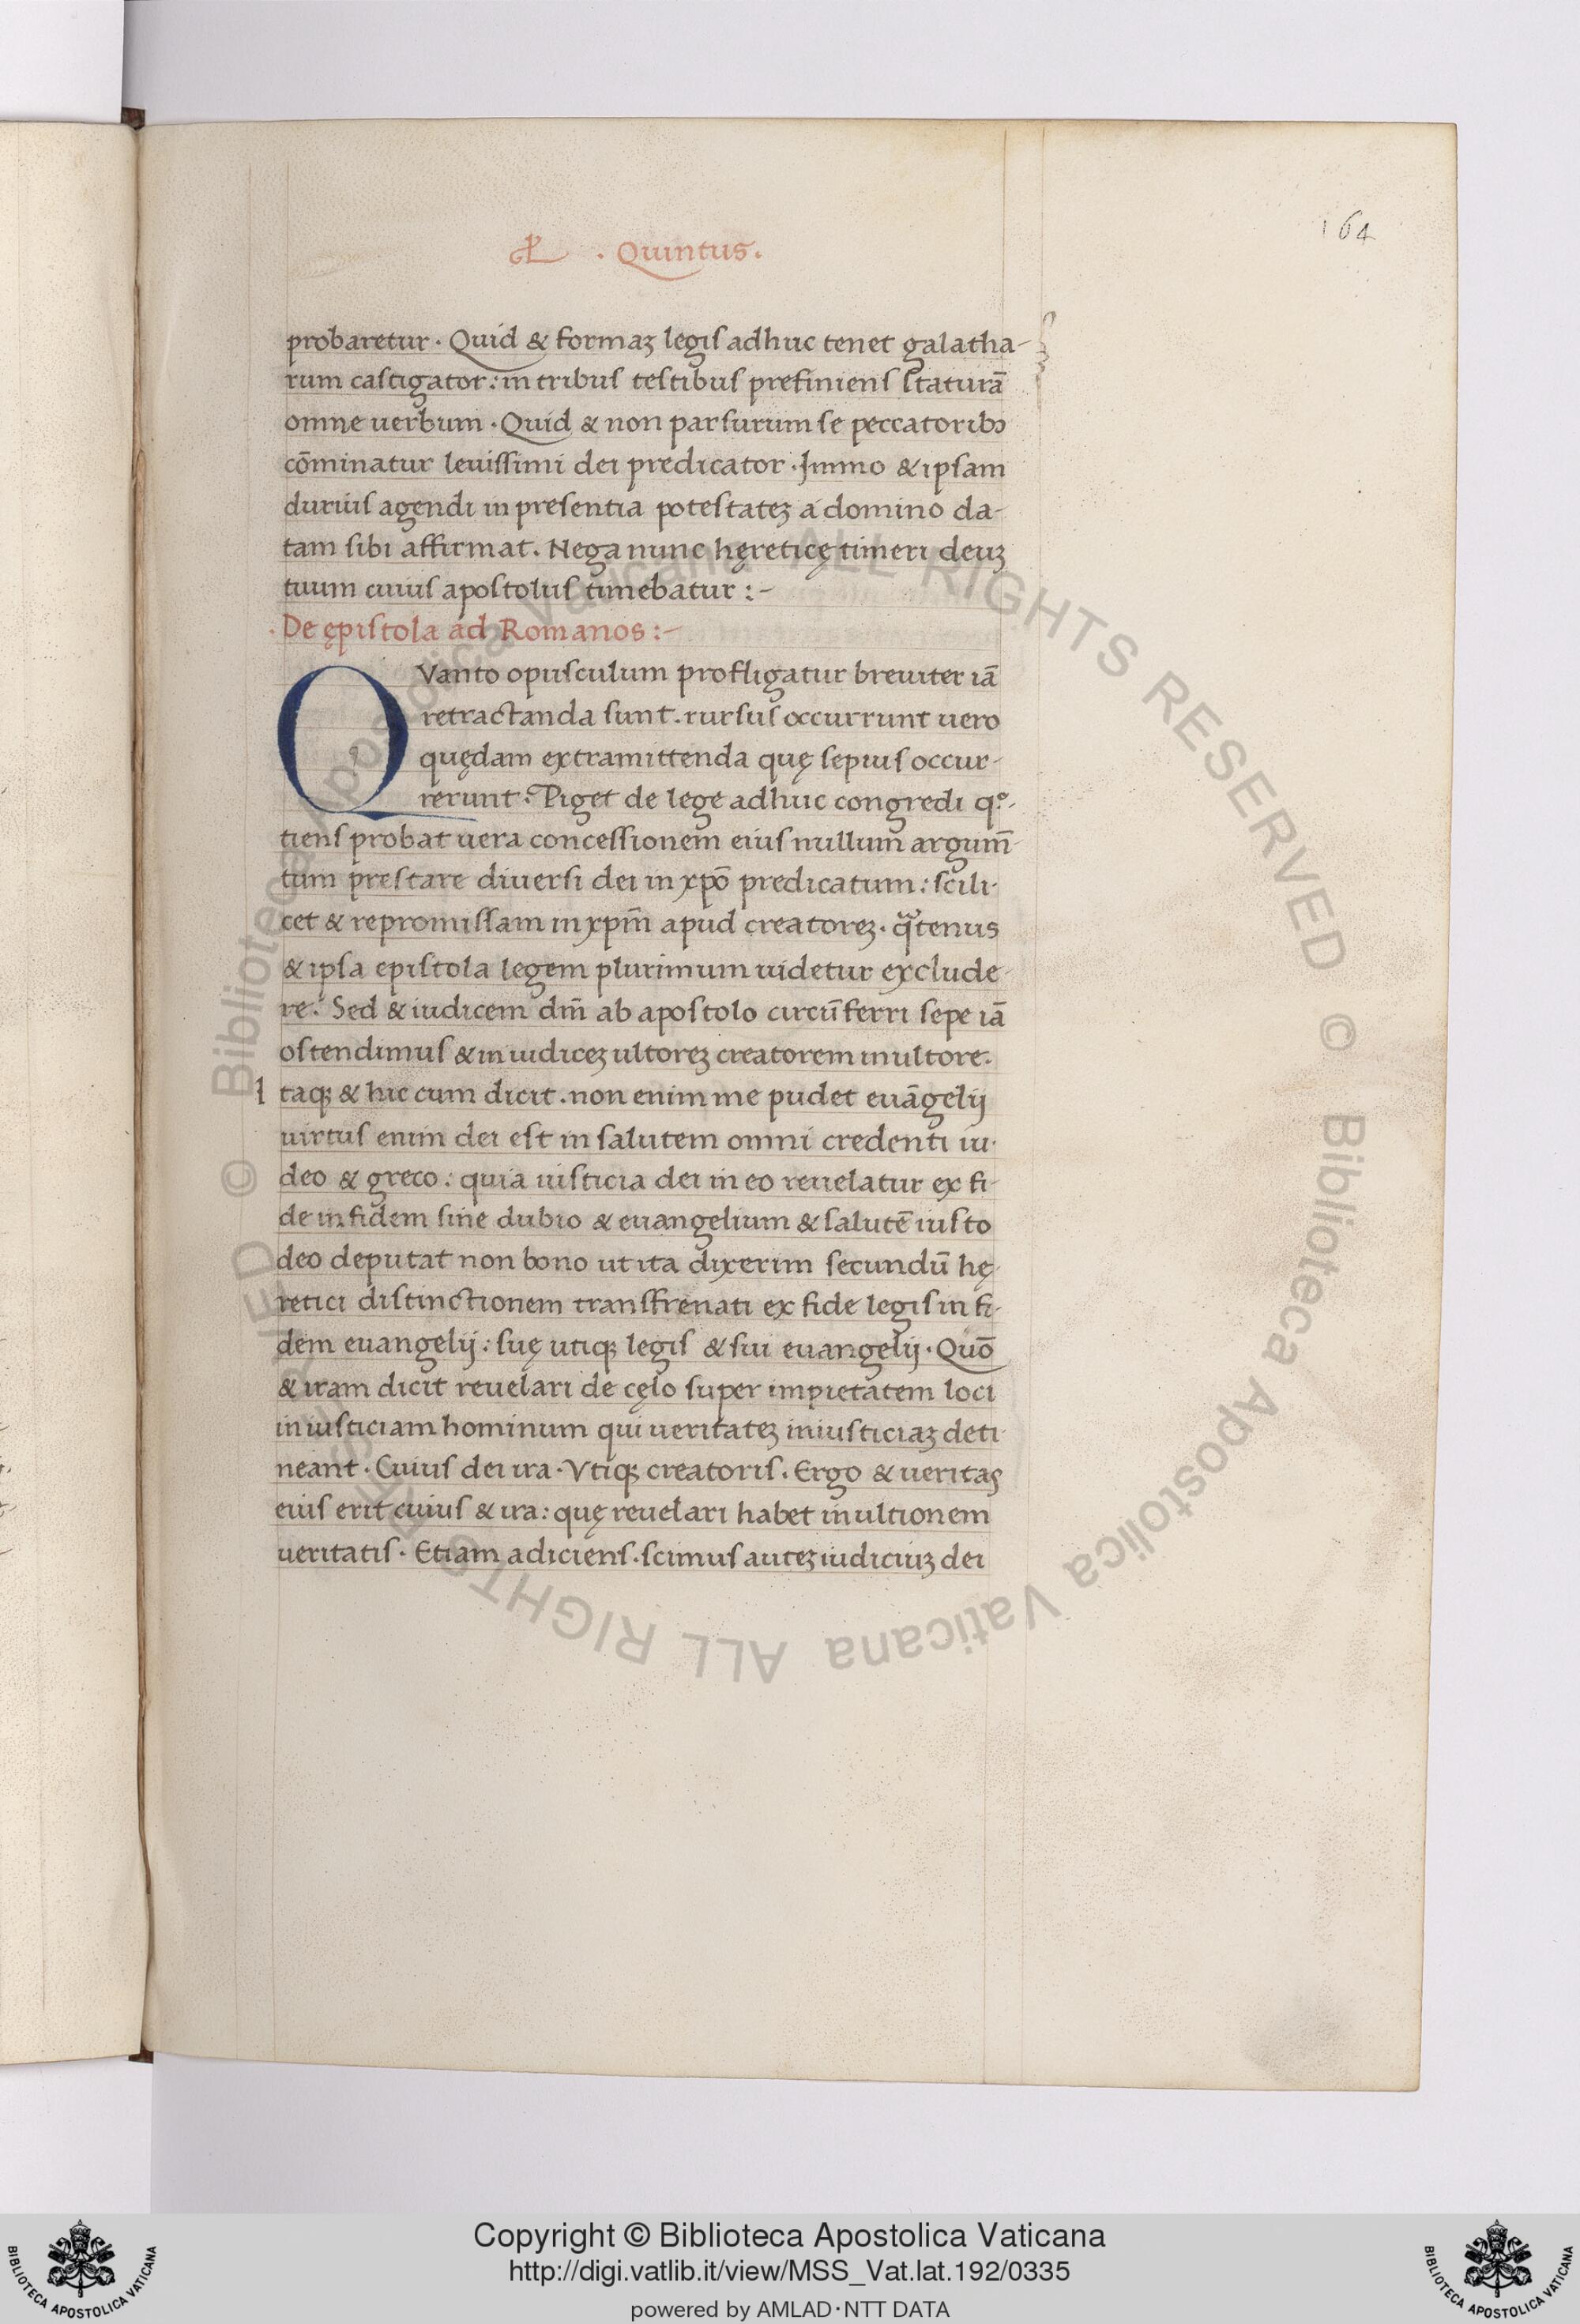 164
· Quintus.
probaretur · Quid & formaꝫ legis adhuc tenet galatha-
rum castigator: in tribus testibus prefiniens staturā
omne uerbum · Quid & non parsurum se peccatoribꝰ
cōminatur leuissimi dei predicator · Immo & ipsam
durius agendi in presentia potestateꝫ a domino da-
tam sibi affirmat. Nega nunc hęreticę timeri deuꝫ
tuum cuius apostolus timebatur :-
· De ępistola ad Romanos :-
QVanto opusculum profligatur breuiter iā
retractanda sunt. rursus occurrunt uero
quędam extramittenda quę sepius occur-
rerunt: Piget de lege adhuc congredi qº-
tiens probat uera concessionem eius nullum argum̄-
tum prestare diuersi dei in xpō predicatum: scili-
cet & repromissam in xpm̄ apud creatoreꝫ. qᵃtenus
& ipsa epistola legem plurimum uidetur exclude-
re: Sed & iudicem dm̄ ab apostolo circūferri sepe iā
ostendimus & in iudiceꝫ ultoreꝫ creatorem in ultore.
I taqꝫ & hic cum dicit. non enim me pudet euāgelij
uirtus enim dei est in salutem omni credenti iu-
deo & greco: quia iusticia dei in eo reuelatur ex fi-
de in fidem sine dubio & euangelium & salutē iusto
deo deputat non bono ut ita dixerim secundū hę-
retici distinctionem transfrenati ex fide legis in fi-
dem euangelij: suę utiqꝫ legis & sui euangelij · Quō
& iram dicit reuelari de cęlo super impietatem loci
iniusticiam hominum qui ueritateꝫ iniusticiaꝫ deti-
neant · Cuius dei ira · Vtiqꝫ creatoris. Ergo & ueritas
eius erit cuius & ira: quę reuelari habet in ultionem
ueritatis · Etiam adiciens. scimus auteꝫ iudiciuꝫ dei
© Biblioteca Apostolica Vaticana ALL RIGHTS RESERVED © Biblioteca Apostolica Vaticana ALL RIGHTS RESERVED
Copyright © Biblioteca Apostolica Vaticana
http://digi.vatlib.it/view/MSS_Vat.lat.192/0335
powered by AMLAD·NTT DATA
BIBLIOTECA APOSTOLICA VATICANA
BIBLIOTECA APOSTOLICA VATICANA